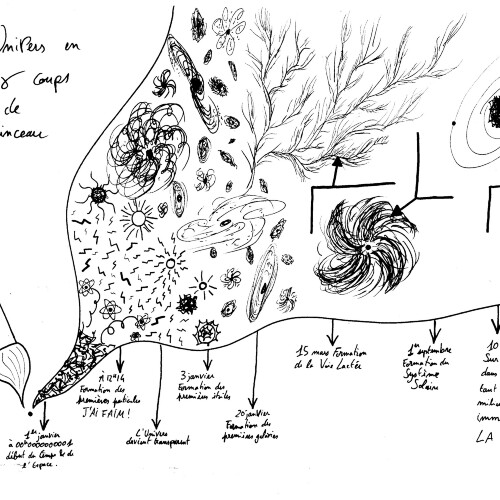 Univers en
coups
de
inceau
1er janvier
à 00h00000000001
début du temps & de
l'Espace.
À 12h14
Formation des
premières particules
J'AI FAIM!
L'Univers
devient transparent
3 janvier
Formation des
premières étoiles
20 janvier
Formation des
premières galaxies
15 mars Formation
de la Voie Lactée
1er septembre
Formation du
Système
Solaire
10
Sur
dans
tant
milie
(imm
LA